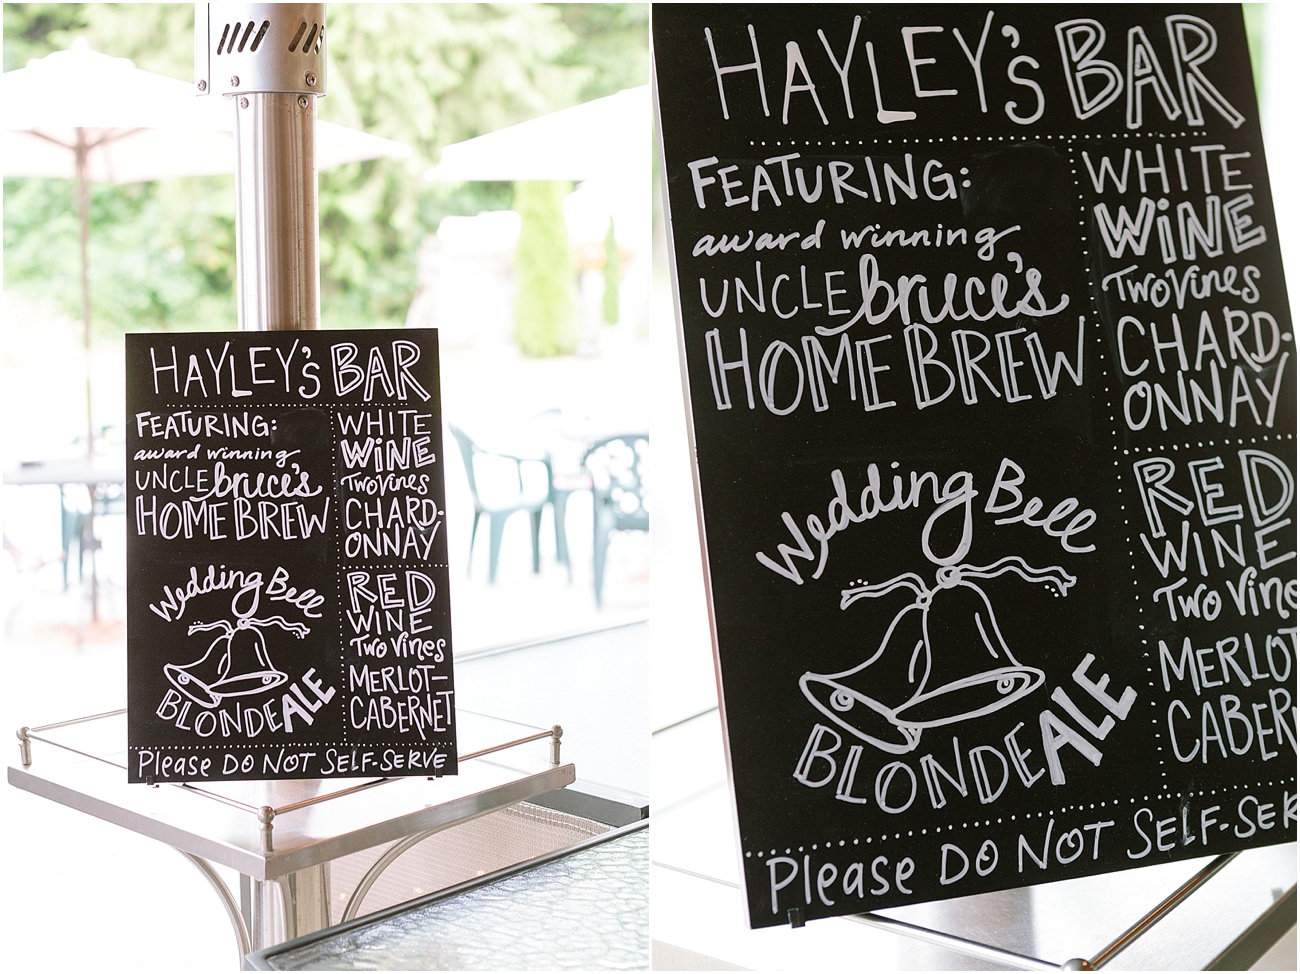 HAYLEY's BAR
FEATURING:
award winning
UNCLE bruce's
HOME BREW
Wedding Bell
BLONDE ALE
WHITE
WiNE
Two Vines
CHARD-
ONNAY
RED
WINE
Two Vines
MERLOT-
CABERNET
Please DO NOT SELF-SERVE
HAYLEY's BAR
FEATURING:
award winning
UNCLE bruce's
HOME BREW
Wedding Bell
BLONDE ALE
WHITE
WiNE
Two Vines
CHARD-
ONNAY
RED
WINE
Two Vine
MERLOT
CABER
Please DO NOT SELF-SER